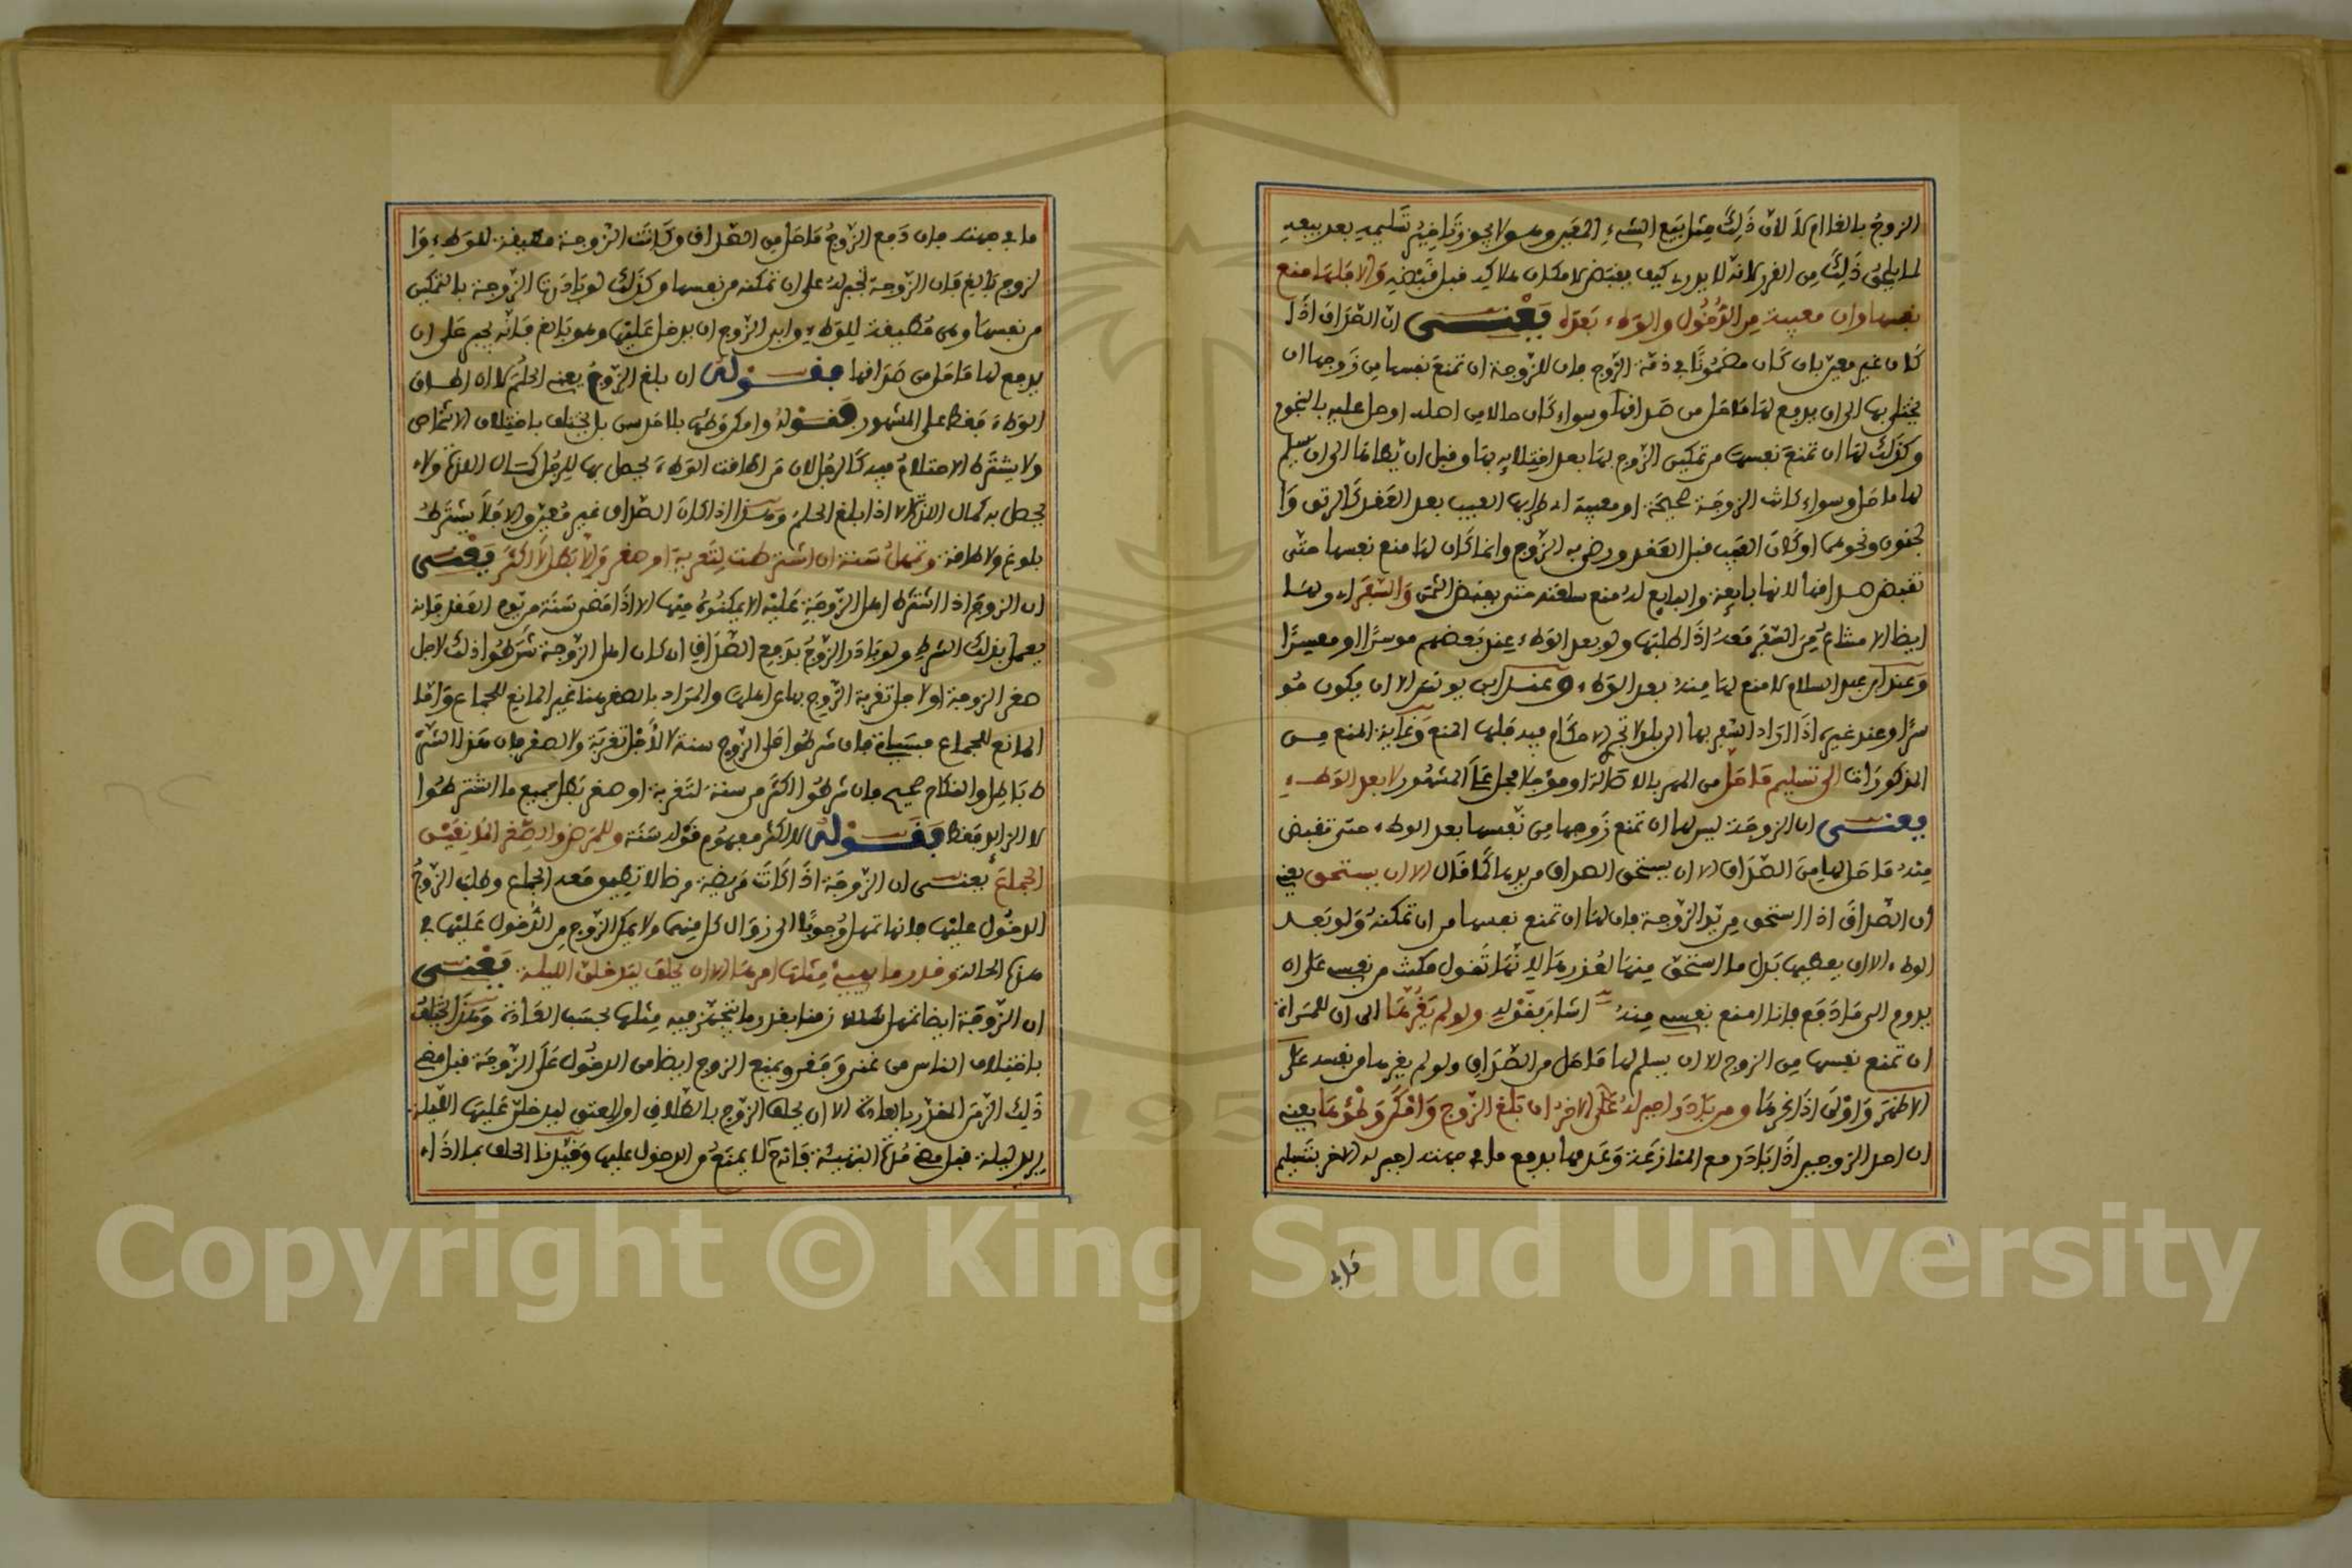 الزوج بالغا ام لا لان ذلك مثل بيع الشيء المعين وهو لا يجوز تاخير تسليمه بعد بيعه
لما يلحق ذلك من الغرر لانه لا يدرى كيف يقبض لامكان هلاكه قبل قبضه والا فلها منع
نفسها وان معيبة من الدخول والوطء بعده يعنى ان الصداق اذا
كان غير معين بان كان مضمونا في ذمة الزوج فان للزوجة ان تمنع نفسها من زوجها ان
يختلى بها الى ان يدفع لها ما حل من صداقها وسواء كان حالا من اصله او حل عليه بالنجوم
وكذلك لها ان تمنع نفسها من تمكين الزوج بها بعد اختلايه بها وقبل ان يطاها الى ان يسلم
لها ما حل وسواء كانت الزوجة صحيحة او معيبة اطرا بها العيب بعد العقد كالرتق وا
لجنون ونحوهما او كان العيب قبل العقد ورضي به الزوج وانما كان لها منع نفسها حتى
تقبض صداقها لانها بايعة والبايع له منع سلعته حتى يقبض الثمن والسفر اى ولها
ايضا الامتناع من السفر معه اذا طلبها ولو بعد الوطء عند بعضهم موسرا او معسرا
وعند ابن عبد السلام لا منع لها منه بعد الوطء وعند ابن يونس الا ان يكون مو
سرا وعند غيره اذا اراد السفر بها الى بلد لا تجرى الاحكام فيه فلها المنع وغاية المنع من
المذكورات الى تسليم ما حل من المهر بالاصالة او مؤجلا فحل على المشهور لا بعد الوطء
يعنى ان الزوجة ليس لها ان تمنع زوجها من نفسها بعد الوطء حتى تقبض
منه ما حل لها من الصداق الا ان يستحق الصداق من يدها كما قال الا ان يستحق يعني
ان الصداق اذا استحق من يد الزوجة فان لها ان تمنع نفسها من ان تمكنه ولو بعد
الوطء الا ان يعطيها بدل ما استحق منها لعذرها لانها تقول مكنت من نفسي على ان
يدوم الى ما دفع فانا امنع نفسي منه اشار بقوله ولو لم يغرها الى ان للمراة
ان تمنع نفسها من الزوج الا ان يسلم لها ما حل من الصداق ولو لم يغرها من نفسه على
الاظهر واولى اذا غرها ومن بادر اجبر له الاخر ان بلغ الزوج وامكن وطؤها يعني
ان احد الزوجين اذا بادر مع المنازعة وعدمها بدفع ما في جهته اجبر له الاخر بتسليم
ما في
ما في جهته فان دفع الزوج ما حل من الصداق وكانت الزوجة مطيقة للوطء وا
لزوج بالغ فان الزوجة تجبر له على ان تمكنه من نفسها وكذلك لو بادرت الزوجة بالتمكين
من نفسها وهي مطيقة للوطء وابى الزوج ان يدخل عليها وهو بالغ فانه يجبر على ان
يدفع لها ما حل من صداقها فقوله ان بلغ الزوج يعني الحلم لا ان اطاق
الوطء فقط على المشهور فقوله وامكن وطئها بلا حد سن بل يختلف باختلاف الاشخاص
ولا يشترط الاحتلام فيه كالرجل لان من اطاقت الوطء يحصل بها للرجل كمال اللذة ولا
يحصل به كمال اللذة الا اذا بلغ الحلم وهذا اذا كان الصداق غير معين والا فلا يشترط
بلوغ ولا طاقة وتمهل سنة ان اشترطت لتغربة او صغر والا بطل لا اكثر يعنى
ان الزوج اذا اشترط اهل الزوجة عليه الا يمكنوه منها الا اذا مضى سنة من يوم العقد فانه
يعمل بذلك الشرط ولو بادر الزوج بدفع الصداق ان كان اهل الزوجة شرطوا ذلك لاجل
صغر الزوجة او لاجل تغربة الزوج بها عن اهلها والمراد بالصغر هنا غير المانع للجماع واما
المانع للجماع فسياتي فان شرطوا على الزوج سنة لا لاجل تغربة ولا صغر فان هذا الشر
ط باطل والنكاح صحيح فان شرطوا اكثر من سنة لتغربة او صغر بطل جميع ما اشترطوا
لا الزايد فقط فقوله لا اكثر مفهوم قوله سنة وللمرض والصغر المانعين
الجماع يعنى ان الزوجة اذا كانت مريضة مرضا لا تطيق معه الجماع وطلب الزوج
الدخول عليها فانها تمهل وجوبا الى زوال كل منهما ولا يمكن الزوج من الدخول عليها في
هذه الحالة وقدر ما يهيئ مثلها امرها الا ان يحلف ليدخلن الليلة يعنى
ان الزوجة ايضا تمهل زمنا بقدر ما يتجهز فيه مثلها بحسب العادة وهذا يختلف
باختلاف الناس من غنى وفقر ويمنع الزوج ايضا من الدخول على الزوجة قبل مضي
ذلك الزمن المقدر بالعادة الا ان يحلف الزوج بالطلاق او العتق ليدخلن عليها الليلة
يريد ليلة قبل مضي مدة التهيئة فانه لا يمنع من الدخول عليها وقيدنا الحلف بما اذا
Copyright © King Saud University